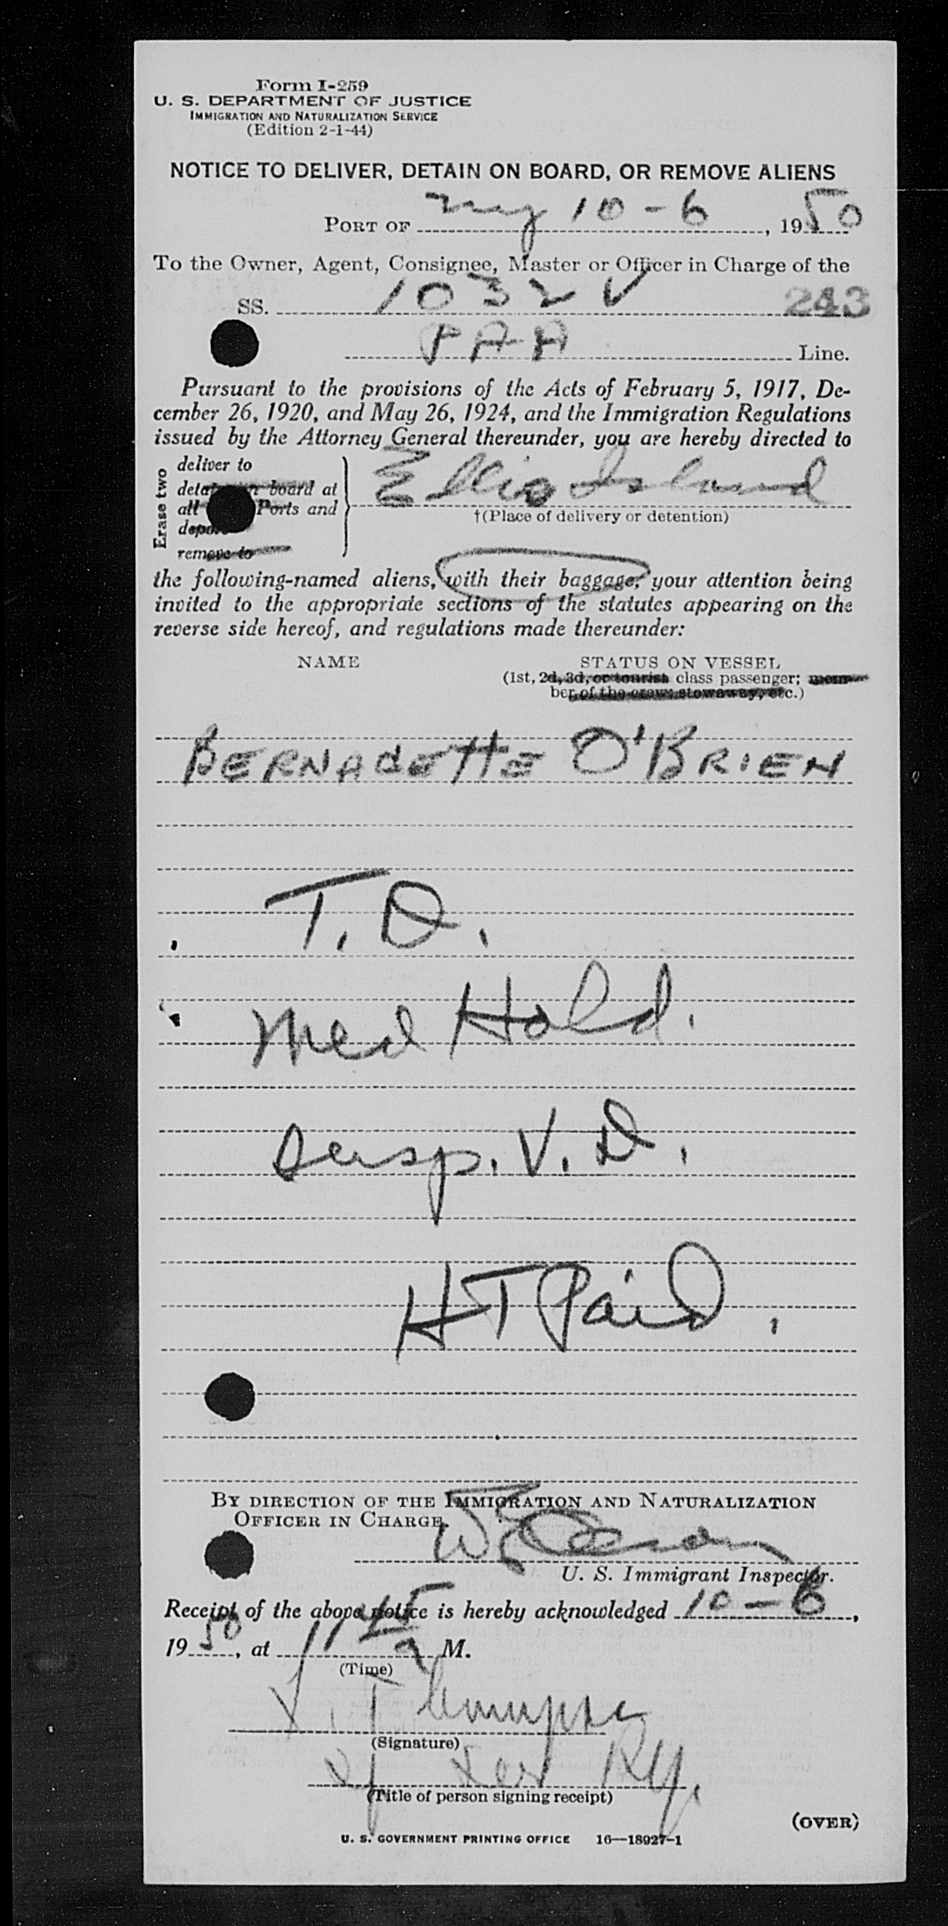 Form I-259
U. S. DEPARTMENT OF JUSTICE
IMMIGRATION AND NATURALIZATION SERVICE
(Edition 2-1-44)
NOTICE TO DELIVER, DETAIN ON BOARD, OR REMOVE ALIENS
PORT OF ny 10-6, 1950
To the Owner, Agent, Consignee, Master or Officer in Charge of the
SS. 1032 V 243
PAA Line.
Pursuant to the provisions of the Acts of February 5, 1917, De-
cember 26, 1920, and May 26, 1924, and the Immigration Regulations
issued by the Attorney General thereunder, you are hereby directed to
Erase two
deliver to
board at
all Ports and
remove to
Ellis Island
†(Place of delivery or detention)
the following-named aliens, with their baggage, your attention being
invited to the appropriate sections of the statutes appearing on the
reverse side hereof, and regulations made thereunder:
NAME STATUS ON VESSEL
(1st, 2d, 3d, or tourist class passenger; mem-
ber of the crew; stowaway, etc.)
BERNADETTE O'BRIEN
T. D.
Med Hold.
Susp. V. D.
HT Paid.
BY DIRECTION OF THE IMMIGRATION AND NATURALIZATION
OFFICER IN CHARGE.
U. S. Immigrant Inspector.
Receipt of the above notice is hereby acknowledged 10-6,
1950, at 1145 a M.
(Time)
(Signature)
(Title of person signing receipt)
(OVER)
U. S. GOVERNMENT PRINTING OFFICE 16—18927-1